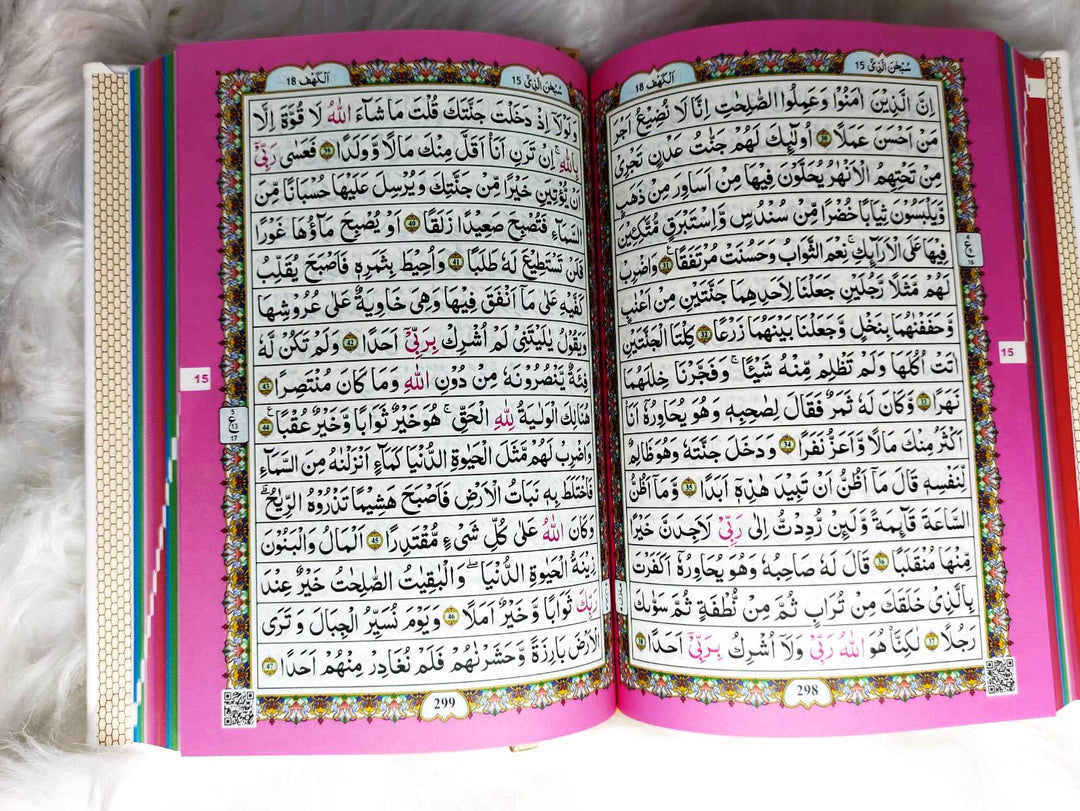 سُبْحٰنَ الَّذِیْۤ 15
اَلْكَهْف 18
اِنَّ الَّذِیْنَ اٰمَنُوْا وَعَمِلُوا الصّٰلِحٰتِ اِنَّا لَا نُضِیْعُ اَجْرَ
مَنْ اَحْسَنَ عَمَلًا ۝30 اُولٰٓئِكَ لَهُمْ جَنّٰتُ عَدْنٍ تَجْرِیْ
مِنْ تَحْتِهِمُ الْاَنْهٰرُ یُحَلَّوْنَ فِیْهَا مِنْ اَسَاوِرَ مِنْ ذَهَبٍ
وَّیَلْبَسُوْنَ ثِیَابًا خُضْرًا مِّنْ سُنْدُسٍ وَّاِسْتَبْرَقٍ مُّتَّكِـِٕیْنَ
فِیْهَا عَلَی الْاَرَآىِٕكِ ؕ نِعْمَ الثَّوَابُ وَحَسُنَتْ مُرْتَفَقًا ۝31 وَاضْرِبْ
لَهُمْ مَّثَلًا رَّجُلَیْنِ جَعَلْنَا لِاَحَدِهِمَا جَنَّتَیْنِ مِنْ اَعْنَابٍ
وَّحَفَفْنٰهُمَا بِنَخْلٍ وَّجَعَلْنَا بَیْنَهُمَا زَرْعًا ۝32 كِلْتَا الْجَنَّتَیْنِ
اٰتَتْ اُكُلَهَا وَلَمْ تَظْلِمْ مِّنْهُ شَیْـًٔا ۙ وَّفَجَّرْنَا خِلٰلَهُمَا
نَهَرًا ۝33 وَّكَانَ لَهٗ ثَمَرٌ ۚ فَقَالَ لِصَاحِبِهٖ وَهُوَ یُحَاوِرُهٗۤ اَنَا
اَكْثَرُ مِنْكَ مَالًا وَّاَعَزُّ نَفَرًا ۝34 وَدَخَلَ جَنَّتَهٗ وَهُوَ ظَالِمٌ
لِّنَفْسِهٖ ۚ قَالَ مَاۤ اَظُنُّ اَنْ تَبِیْدَ هٰذِهٖۤ اَبَدًا ۝35 وَّمَاۤ اَظُنُّ
السَّاعَةَ قَآىِٕمَةً ۙ وَّلَىِٕنْ رُّدِدْتُّ اِلٰی رَبِّیْ لَاَجِدَنَّ خَیْرًا
مِّنْهَا مُنْقَلَبًا ۝36 قَالَ لَهٗ صَاحِبُهٗ وَهُوَ یُحَاوِرُهٗۤ اَكَفَرْتَ
بِالَّذِیْ خَلَقَكَ مِنْ تُرَابٍ ثُمَّ مِنْ نُّطْفَةٍ ثُمَّ سَوّٰىكَ
رَجُلًا ۝37 لٰكِنَّا۠ هُوَ اللّٰهُ رَبِّیْ وَلَاۤ اُشْرِكُ بِرَبِّیْۤ اَحَدًا ۝38
298
15
سُبْحٰنَ الَّذِیْۤ 15
اَلْكَهْف 18
وَلَوْلَاۤ اِذْ دَخَلْتَ جَنَّتَكَ قُلْتَ مَا شَآءَ اللّٰهُ ۙ لَا قُوَّةَ اِلَّا
بِاللّٰهِ ۚ اِنْ تَرَنِ اَنَا اَقَلَّ مِنْكَ مَالًا وَّوَلَدًا ۝39 فَعَسٰی رَبِّیْۤ
اَنْ یُّؤْتِیَنِ خَیْرًا مِّنْ جَنَّتِكَ وَیُرْسِلَ عَلَیْهَا حُسْبَانًا مِّنَ
السَّمَآءِ فَتُصْبِحَ صَعِیْدًا زَلَقًا ۝40 اَوْ یُصْبِحَ مَآؤُهَا غَوْرًا
فَلَنْ تَسْتَطِیْعَ لَهٗ طَلَبًا ۝41 وَاُحِیْطَ بِثَمَرِهٖ فَاَصْبَحَ یُقَلِّبُ
كَفَّیْهِ عَلٰی مَاۤ اَنْفَقَ فِیْهَا وَهِیَ خَاوِیَةٌ عَلٰی عُرُوْشِهَا
وَیَقُوْلُ یٰلَیْتَنِیْ لَمْ اُشْرِكْ بِرَبِّیْۤ اَحَدًا ۝42 وَلَمْ تَكُنْ لَّهٗ
فِئَةٌ یَّنْصُرُوْنَهٗ مِنْ دُوْنِ اللّٰهِ وَمَا كَانَ مُنْتَصِرًا ۝43
هُنَالِكَ الْوَلَایَةُ لِلّٰهِ الْحَقِّ ؕ هُوَ خَیْرٌ ثَوَابًا وَّخَیْرٌ عُقْبًا ۝44
وَاضْرِبْ لَهُمْ مَّثَلَ الْحَیٰوةِ الدُّنْیَا كَمَآءٍ اَنْزَلْنٰهُ مِنَ السَّمَآءِ
فَاخْتَلَطَ بِهٖ نَبَاتُ الْاَرْضِ فَاَصْبَحَ هَشِیْمًا تَذْرُوْهُ الرِّیٰحُ ؕ
وَكَانَ اللّٰهُ عَلٰی كُلِّ شَیْءٍ مُّقْتَدِرًا ۝45 اَلْمَالُ وَالْبَنُوْنَ
زِیْنَةُ الْحَیٰوةِ الدُّنْیَا ۚ وَالْبٰقِیٰتُ الصّٰلِحٰتُ خَیْرٌ عِنْدَ
رَبِّكَ ثَوَابًا وَّخَیْرٌ اَمَلًا ۝46 وَیَوْمَ نُسَیِّرُ الْجِبَالَ وَتَرَی
الْاَرْضَ بَارِزَةً ۙ وَّحَشَرْنٰهُمْ فَلَمْ نُغَادِرْ مِنْهُمْ اَحَدًا ۝47
299
15